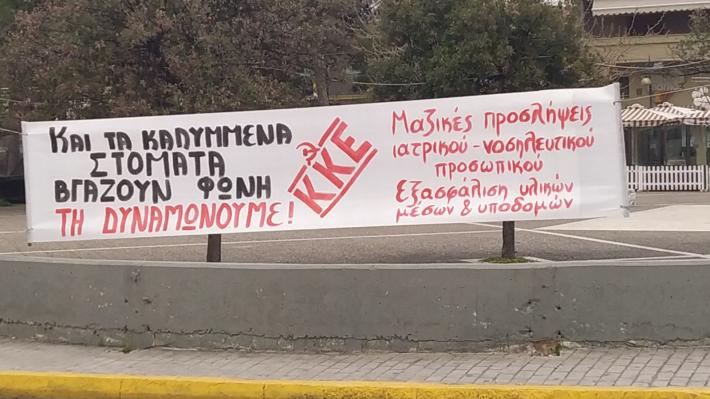 ΚΑΙ ΤΑ ΚΑΛΥΜΜΕΝΑ
ΣΤΟΜΑΤΑ
ΒΓΑΖΟΥΝ ΦΩΝΗ
ΤΗ ΔΥΝΑΜΩΝΟΥΜΕ!
ΚΚΕ
Μαζικές προσλήψεις
ιατρικού - νοσηλευτικού
προσωπικού
Εξασφάλιση υλικών
μέσων & υποδομών